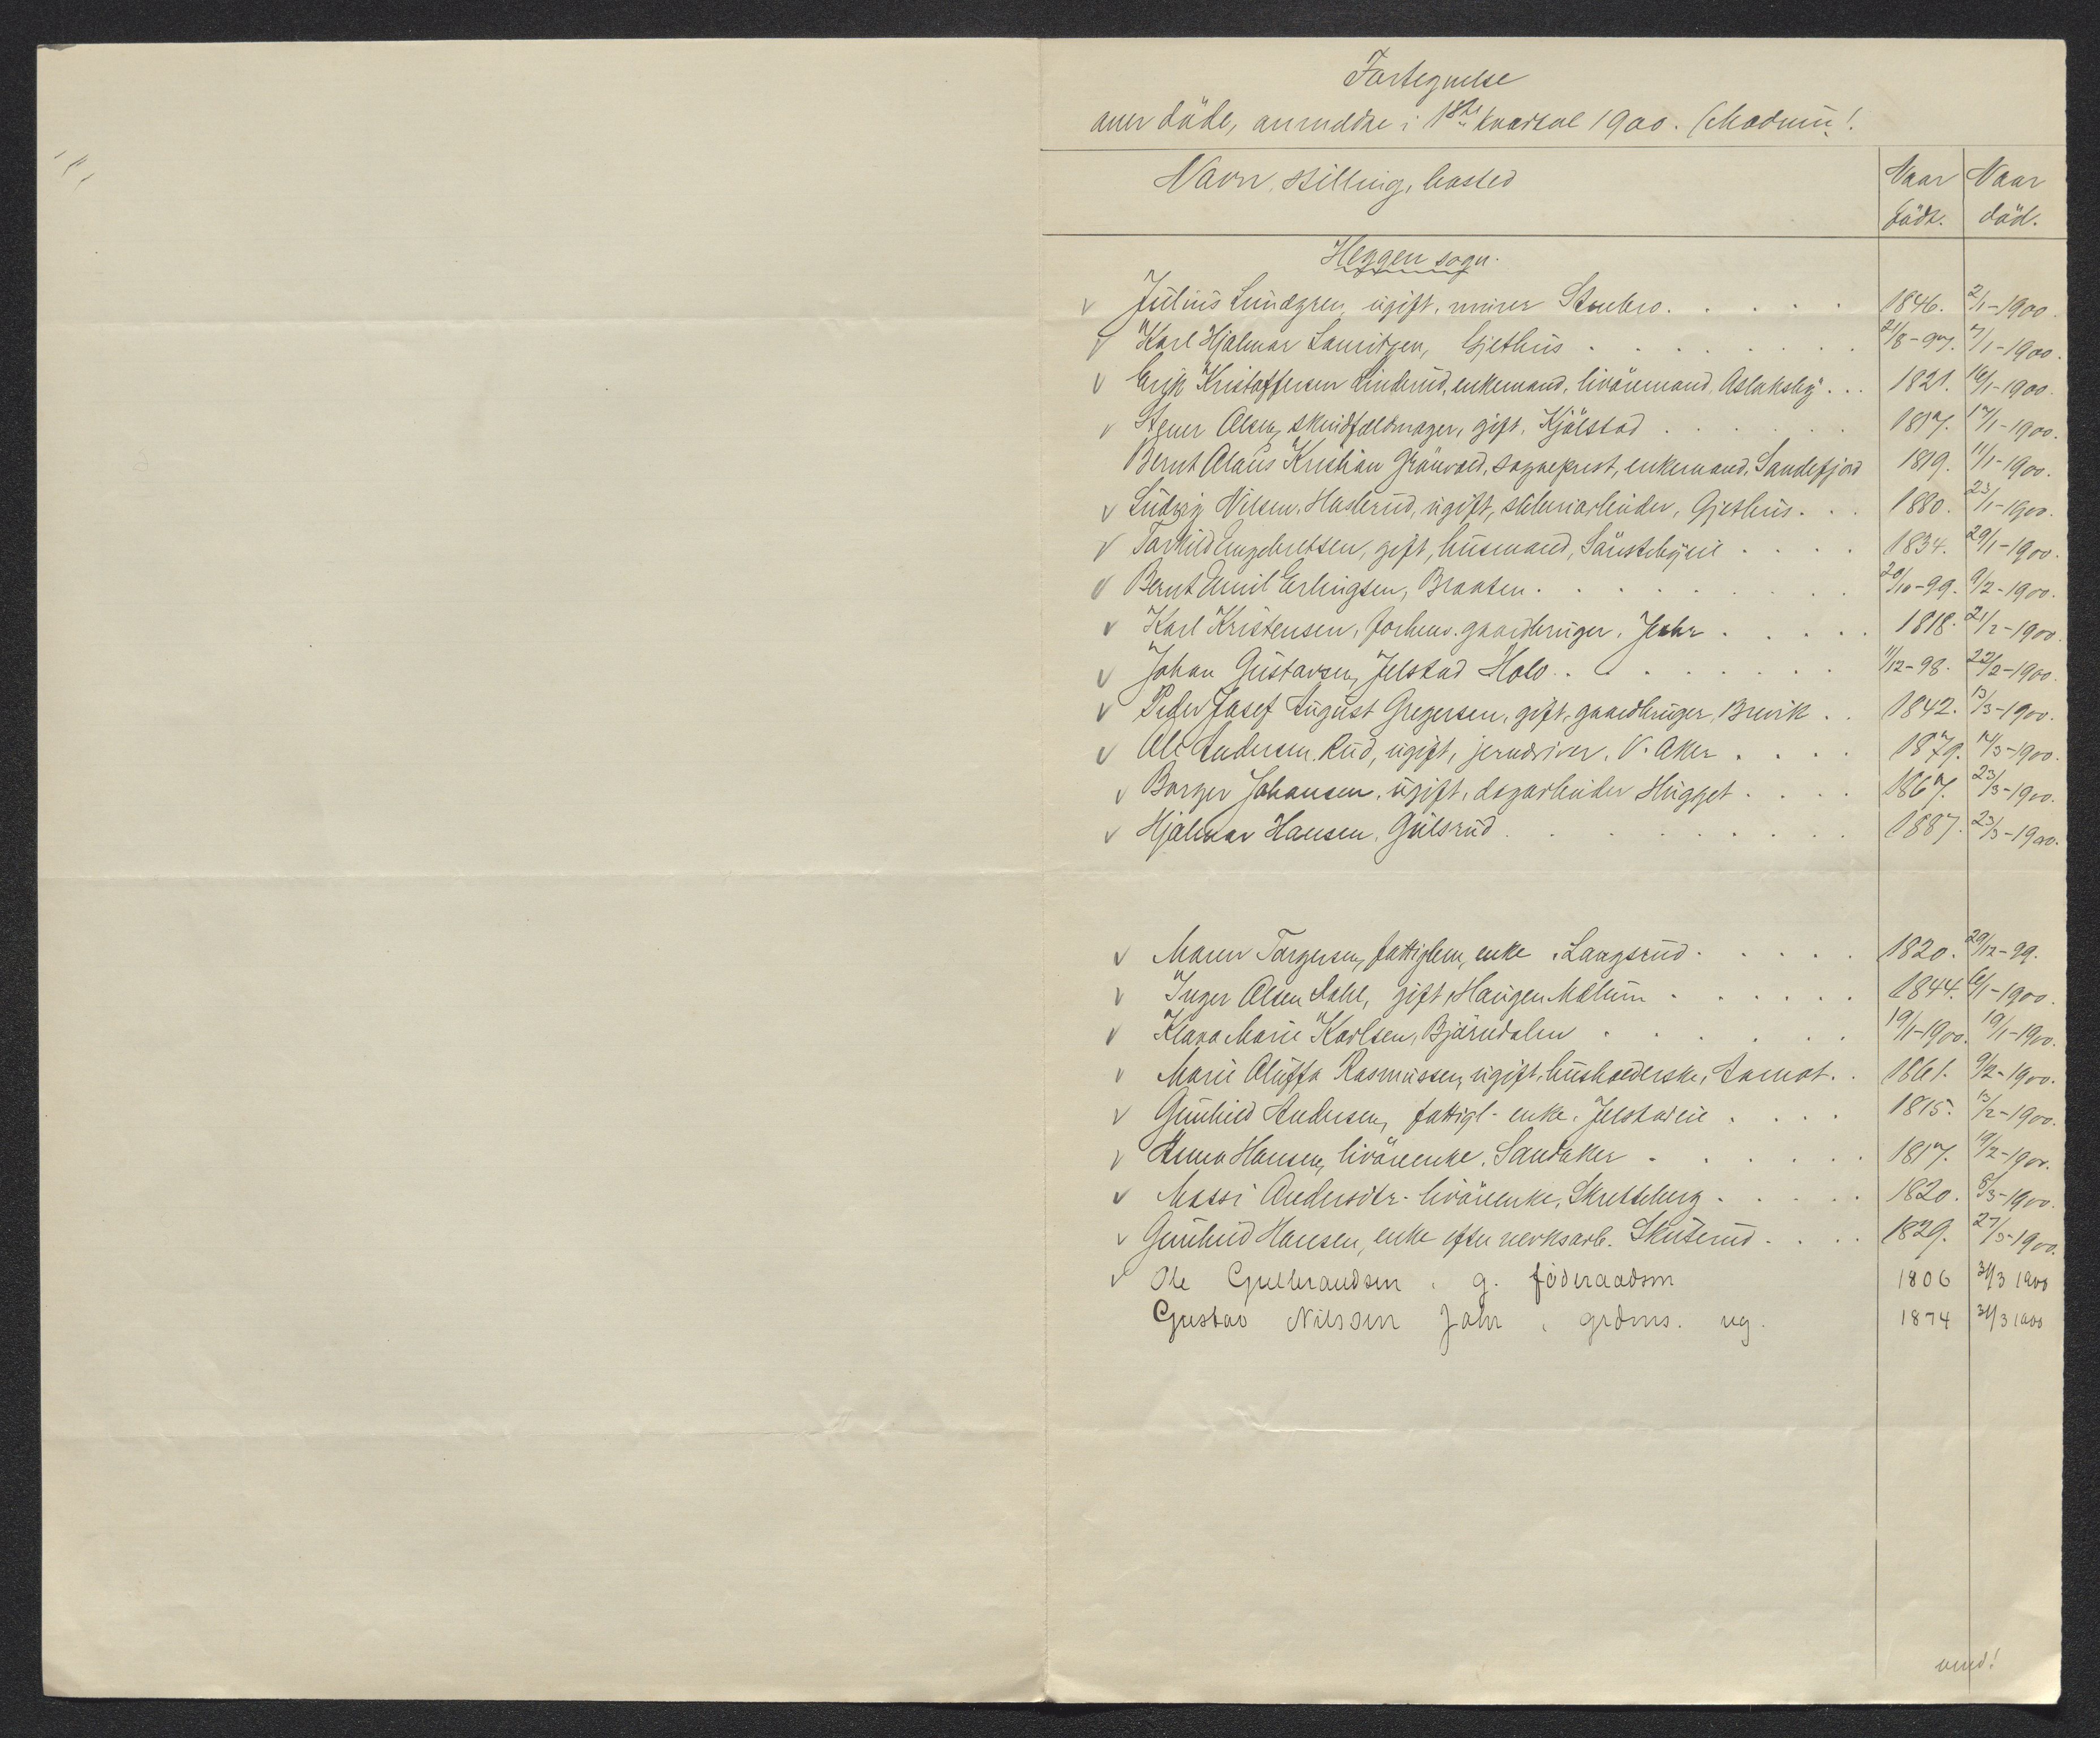 Fortegnelse
over döde, anmeldte i 1ste kvartal 1900. (Modum).
Navn, stilling, bosted
Naar födt.
Naar död.
Heggen sogn.
v Julius Lundgren, ugift, murer Stubro. 1846. 2/1-1900.
v Karl Hjalmar Lauritzen, Gjethus 21/8-97. 7/1-1900.
v Erik Kristoffersen Linderud, enkemand, livöremand, Aslaksby 1821. 16/1-1900.
v Stener Olsen, skindfeldmager, gift, Kjölstad 1817. 17/1-1900.
Bernt Olaus Kristian Grönvold, sogneprest, enkemand, Sandefjord 1819. 11/1-1900.
v Ludvig Nilsen Haslerud, ugift, sliberiarbeider, Gjethus. 1880. 23/1-1900.
v Torkild Engebretsen, gift, husmand, Sönstebyeie 1834. 29/1-1900.
v Bernt Emil Erlingsen, Braaten. 20/10-99. 9/2-1900.
v Karl Kristensen, forhenv. gaardbruger, Jahr 1818. 21/2-1900.
v Johan Gustavsen, Jelstad Holo. 11/12-98. 22/2-1900.
v Peder Josef August Gregersen, gift, gaardbruger, Brevik 1842. 13/3-1900.
v Ole Andersen Rud, ugift, jerndriver, V. Aker 1879. 14/3-1900.
v Borger Johansen, ugift, dagarbeider Hugget 1867. 23/3-1900.
v Hjalmar Hansen, Gulsrud 1887. 23/3-1900.
v Maren Torgersen, fattiglem, enke, Langsrud. 1820. 29/12-99.
v Inger Olsen Dahl, gift, Haugen Melum 1844. 6/1-1900.
v Klara Marie Karlsen, Bjørndalen 19/1-1900. 19/1-1900.
v Marie Oluffa Rasmussen, ugift, husholderske, Aamot. 1861. 9/2-1900.
v Gunhild Andersen, fattigl- enke, Jelstadeie 1815. 13/2-1900.
v Anna Hansen, livörenke, Sandaker 1817. 19/2-1900.
v Massi Andersdtr- livörenke, Skretteberg 1820. 8/3-1900.
v Gunhild Hansen, enke efter verksarb. Skuterud 1829. 27/3-1900.
v Ole Gulbrandsen, g. föderaadsm 1806 31/3 1900
Gustav Nilssen Jahr, grdms. ug. 1874 31/3 1900
vend!